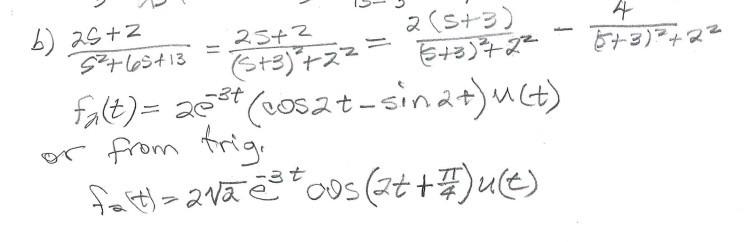 b) 2s+2 / s²+6s+13 = 2s+2 / (s+3)²+2² = 2(s+3) / (s+3)²+2² − 4 / (s+3)²+2²
f₂(t) = 2e^{-3t} (cos2t − sin2t) u(t)
or from trig.
f₂(t) = 2√2 e^{-3t} cos(2t + π/4) u(t)